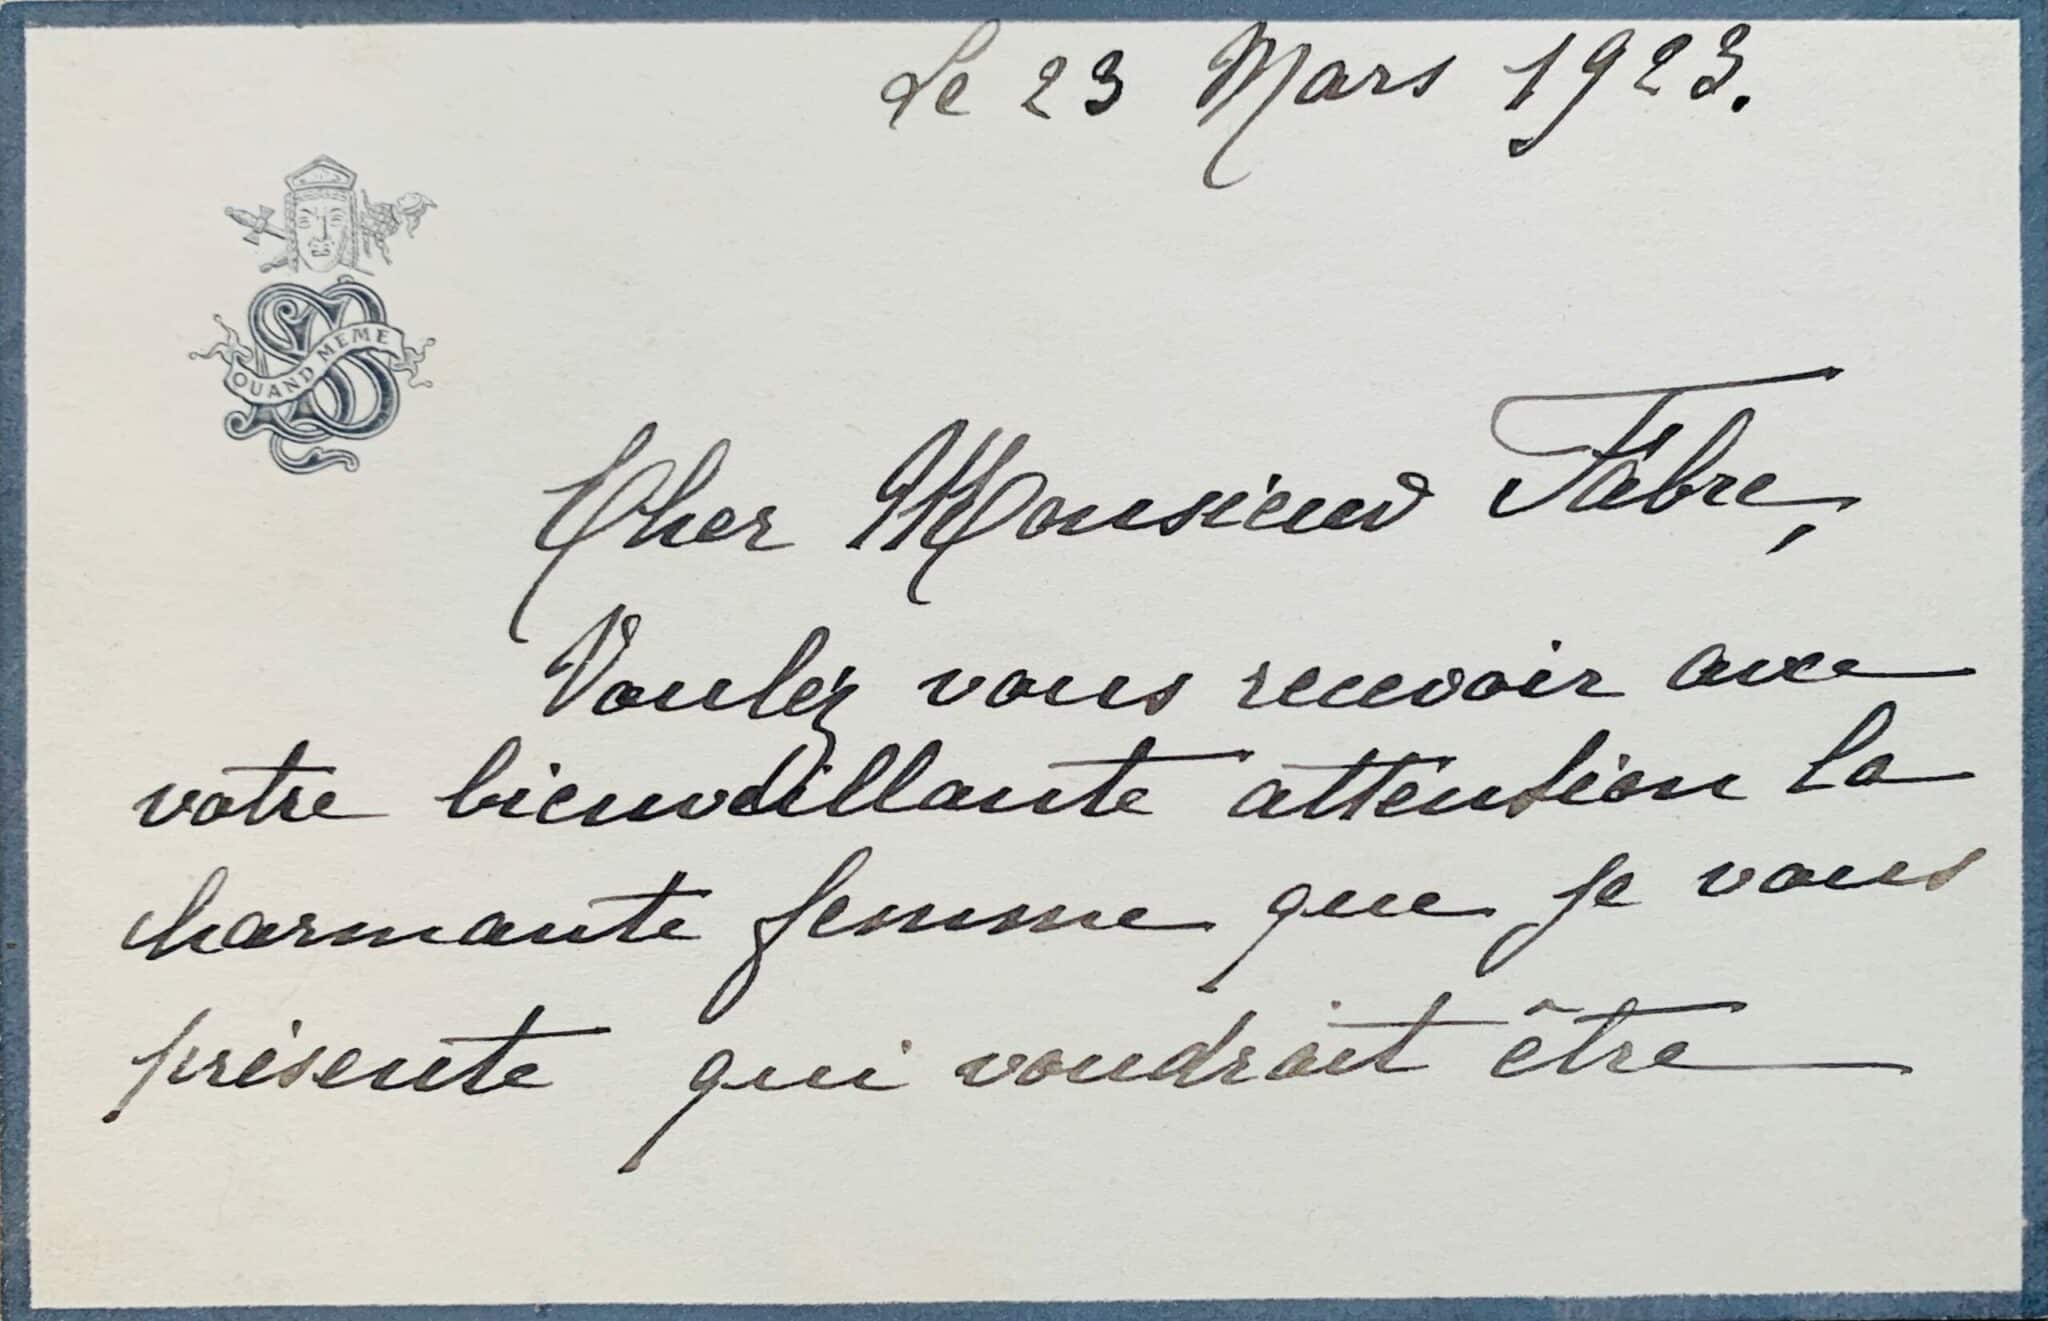 Le 23 Mars 1923.
QUAND MEME
Cher Monsieur Fabre,
Voulez vous recevoir avec
votre bienveillante attention la
charmante femme que je vous
présente qui voudrait être